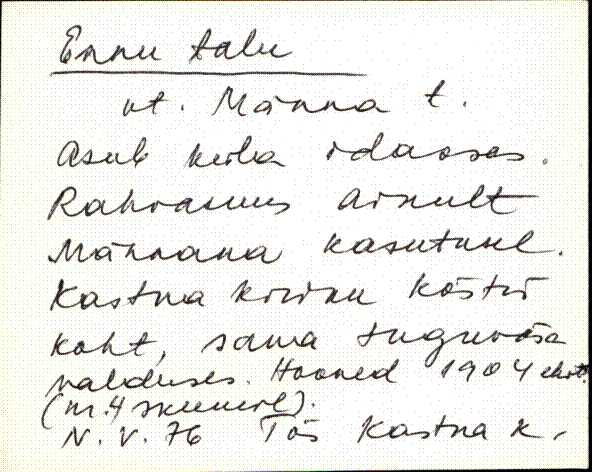 Ennu talu
vt. Männa t.
Asub küla idaosas.
Rahvasuus ainult
Männana kasutusel.
Kastna kiriku köstri
koht, sama suguvõsa
valduses. Hooned 1904 ehit.
(nr. 4 skeemil).
N. V. 76 Tõs Kastna k.